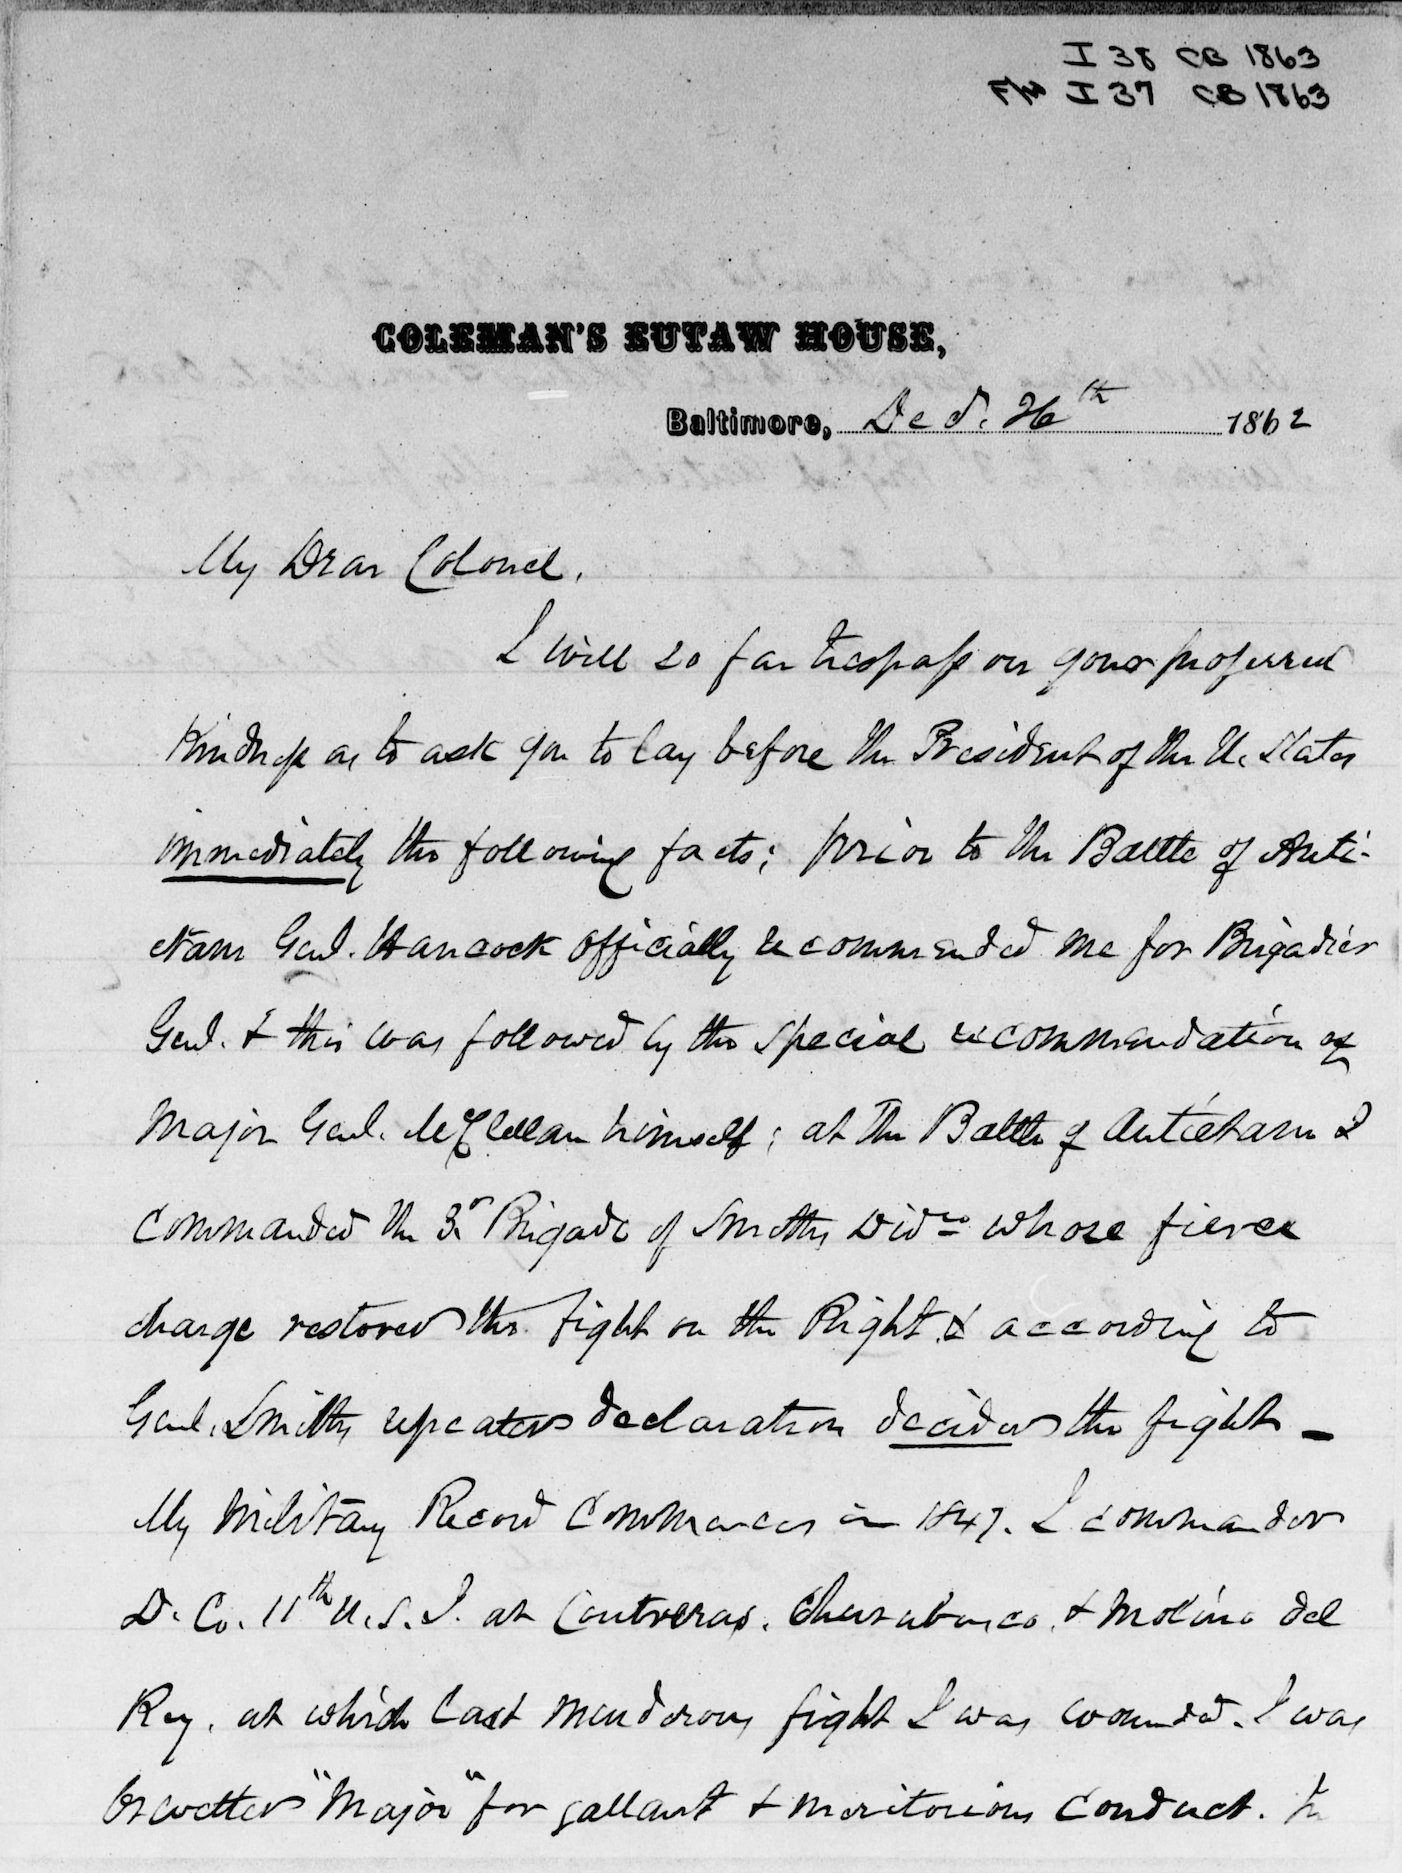 I 38 CB 1863
F/W I 37 CB 1863
COLEMAN'S EUTAW HOUSE,
Baltimore, Dec. 26th 1862
My Dear Colonel.
I will so far trespass on your proferred
Kindness as to ask you to lay before the President of the U. States
immediately the following facts; prior to the Battle of Anti-
etam Genl. Hancock officially recommended me for Brigadier
Genl. & this was followed by the special recommendation of
Major Genl. McClellan himself; at the Battle of Antietam I
commanded the 3d Brigade of Smiths Divn whose fierce
charge restored the fight on the Right & according to
Genl. Smiths repeated declaration decided the fight _
My Military Record Commences in 1847. I commanded
D. Co. 11th U.S.I. at Contreras. Churubusco. & Molino del
Rey. at which last murderous fight I was wounded. I was
brevetted "Major" for gallant & meritorious conduct. In